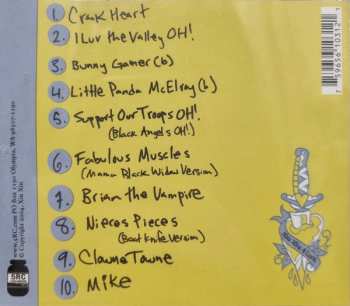 1. Crank Heart
2. I Luv the Valley OH!
3. Bunny Gamer (b)
4. Little Panda McElroy (b)
5. Support Our Troops OH!
(Black Angels OH!)
6. Fabulous Muscles
(Mama Black Widow Version)
7. Brian the Vampire
8. Nieces Pieces
(Boat Knife Version)
9. Clowne Towne
10. Mike
7 59656 10312 1
www.5RC.com PO Box 1190 Olympia, WA 98507-1190
© Copyright 2004, Xiu Xiu
5RC